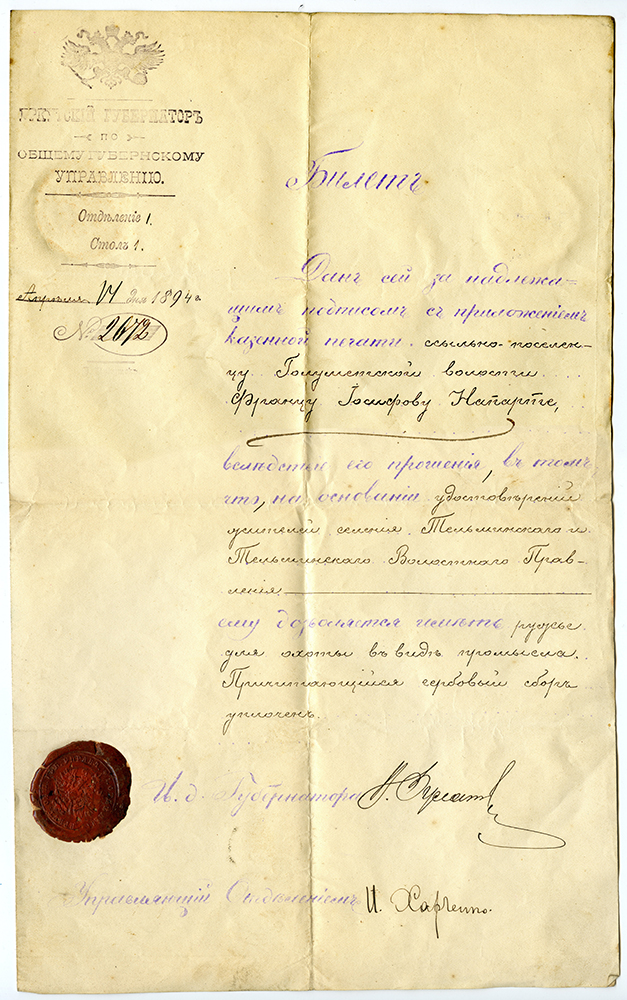 ИРКУТСКІЙ ГУБЕРНАТОРЪ
ПО
ОБЩЕМУ ГУБЕРНСКОМУ
УПРАВЛЕНІЮ.
Отдѣленіе 1.
Столъ 1.
Апрѣля 11 дня 1894 г.
№ 2672
Билетъ
Данъ сей за надлежа-
щимъ подписомъ съ приложеніемъ
казенной печати ссыльно-поселен-
цу Голуметской волости
Францу Іосифову Напартѣ,
вслѣдствіе его прошенія, въ томъ
что, на основаніи удостовѣреній
жителей селенія Тельминскаго и
Тельминскаго Волостнаго Прав-
ленія
ему дозволяется имѣть ружье
для охоты въ видѣ промысла.
Причитающійся гербовый сборъ
уплоченъ.
И. д. Губернатора
Управляющій Отдѣленіемъ И. Харченко.